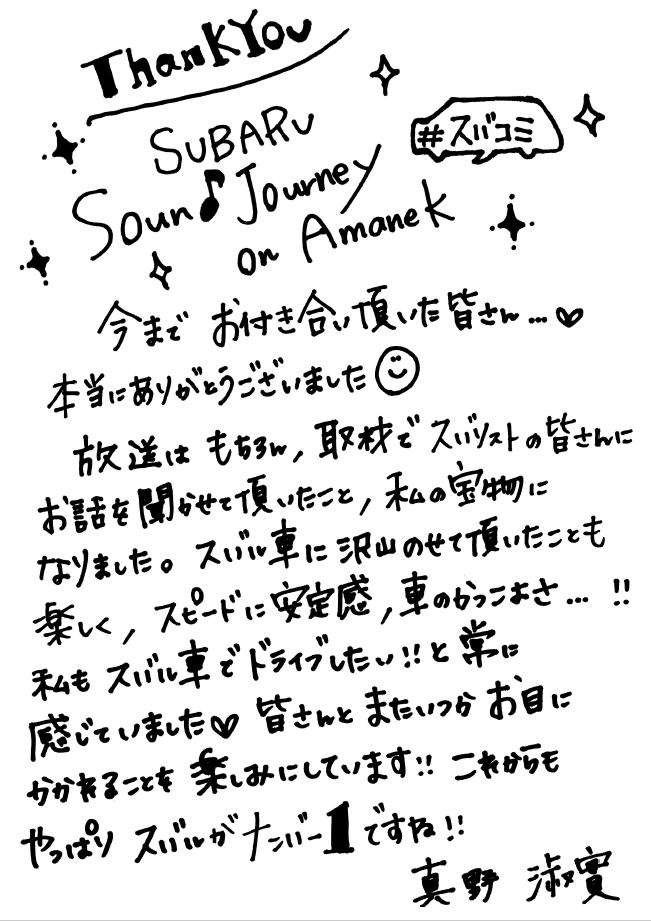 Thank You
SUBARU
#スバコミ
Soun♪Journey
on Amanek
今まで お付き合い頂いた皆さん…♡
本当にありがとうございました☺
放送は もちろん, 取材で スバリストの皆さんに
お話を聞かせて頂いたこと, 私の宝物に
なりました。スバル車に沢山のせて頂いたことも
楽しく, スピードに安定感, 車のかっこよさ… !!
私も スバル車でドライブしたい!!と常に
感じていました♡ 皆さんと またいつか お目に
かかれることを 楽しみにしています!! これからも
やっぱり スバルがナンバー1ですね!!
真野 淑實